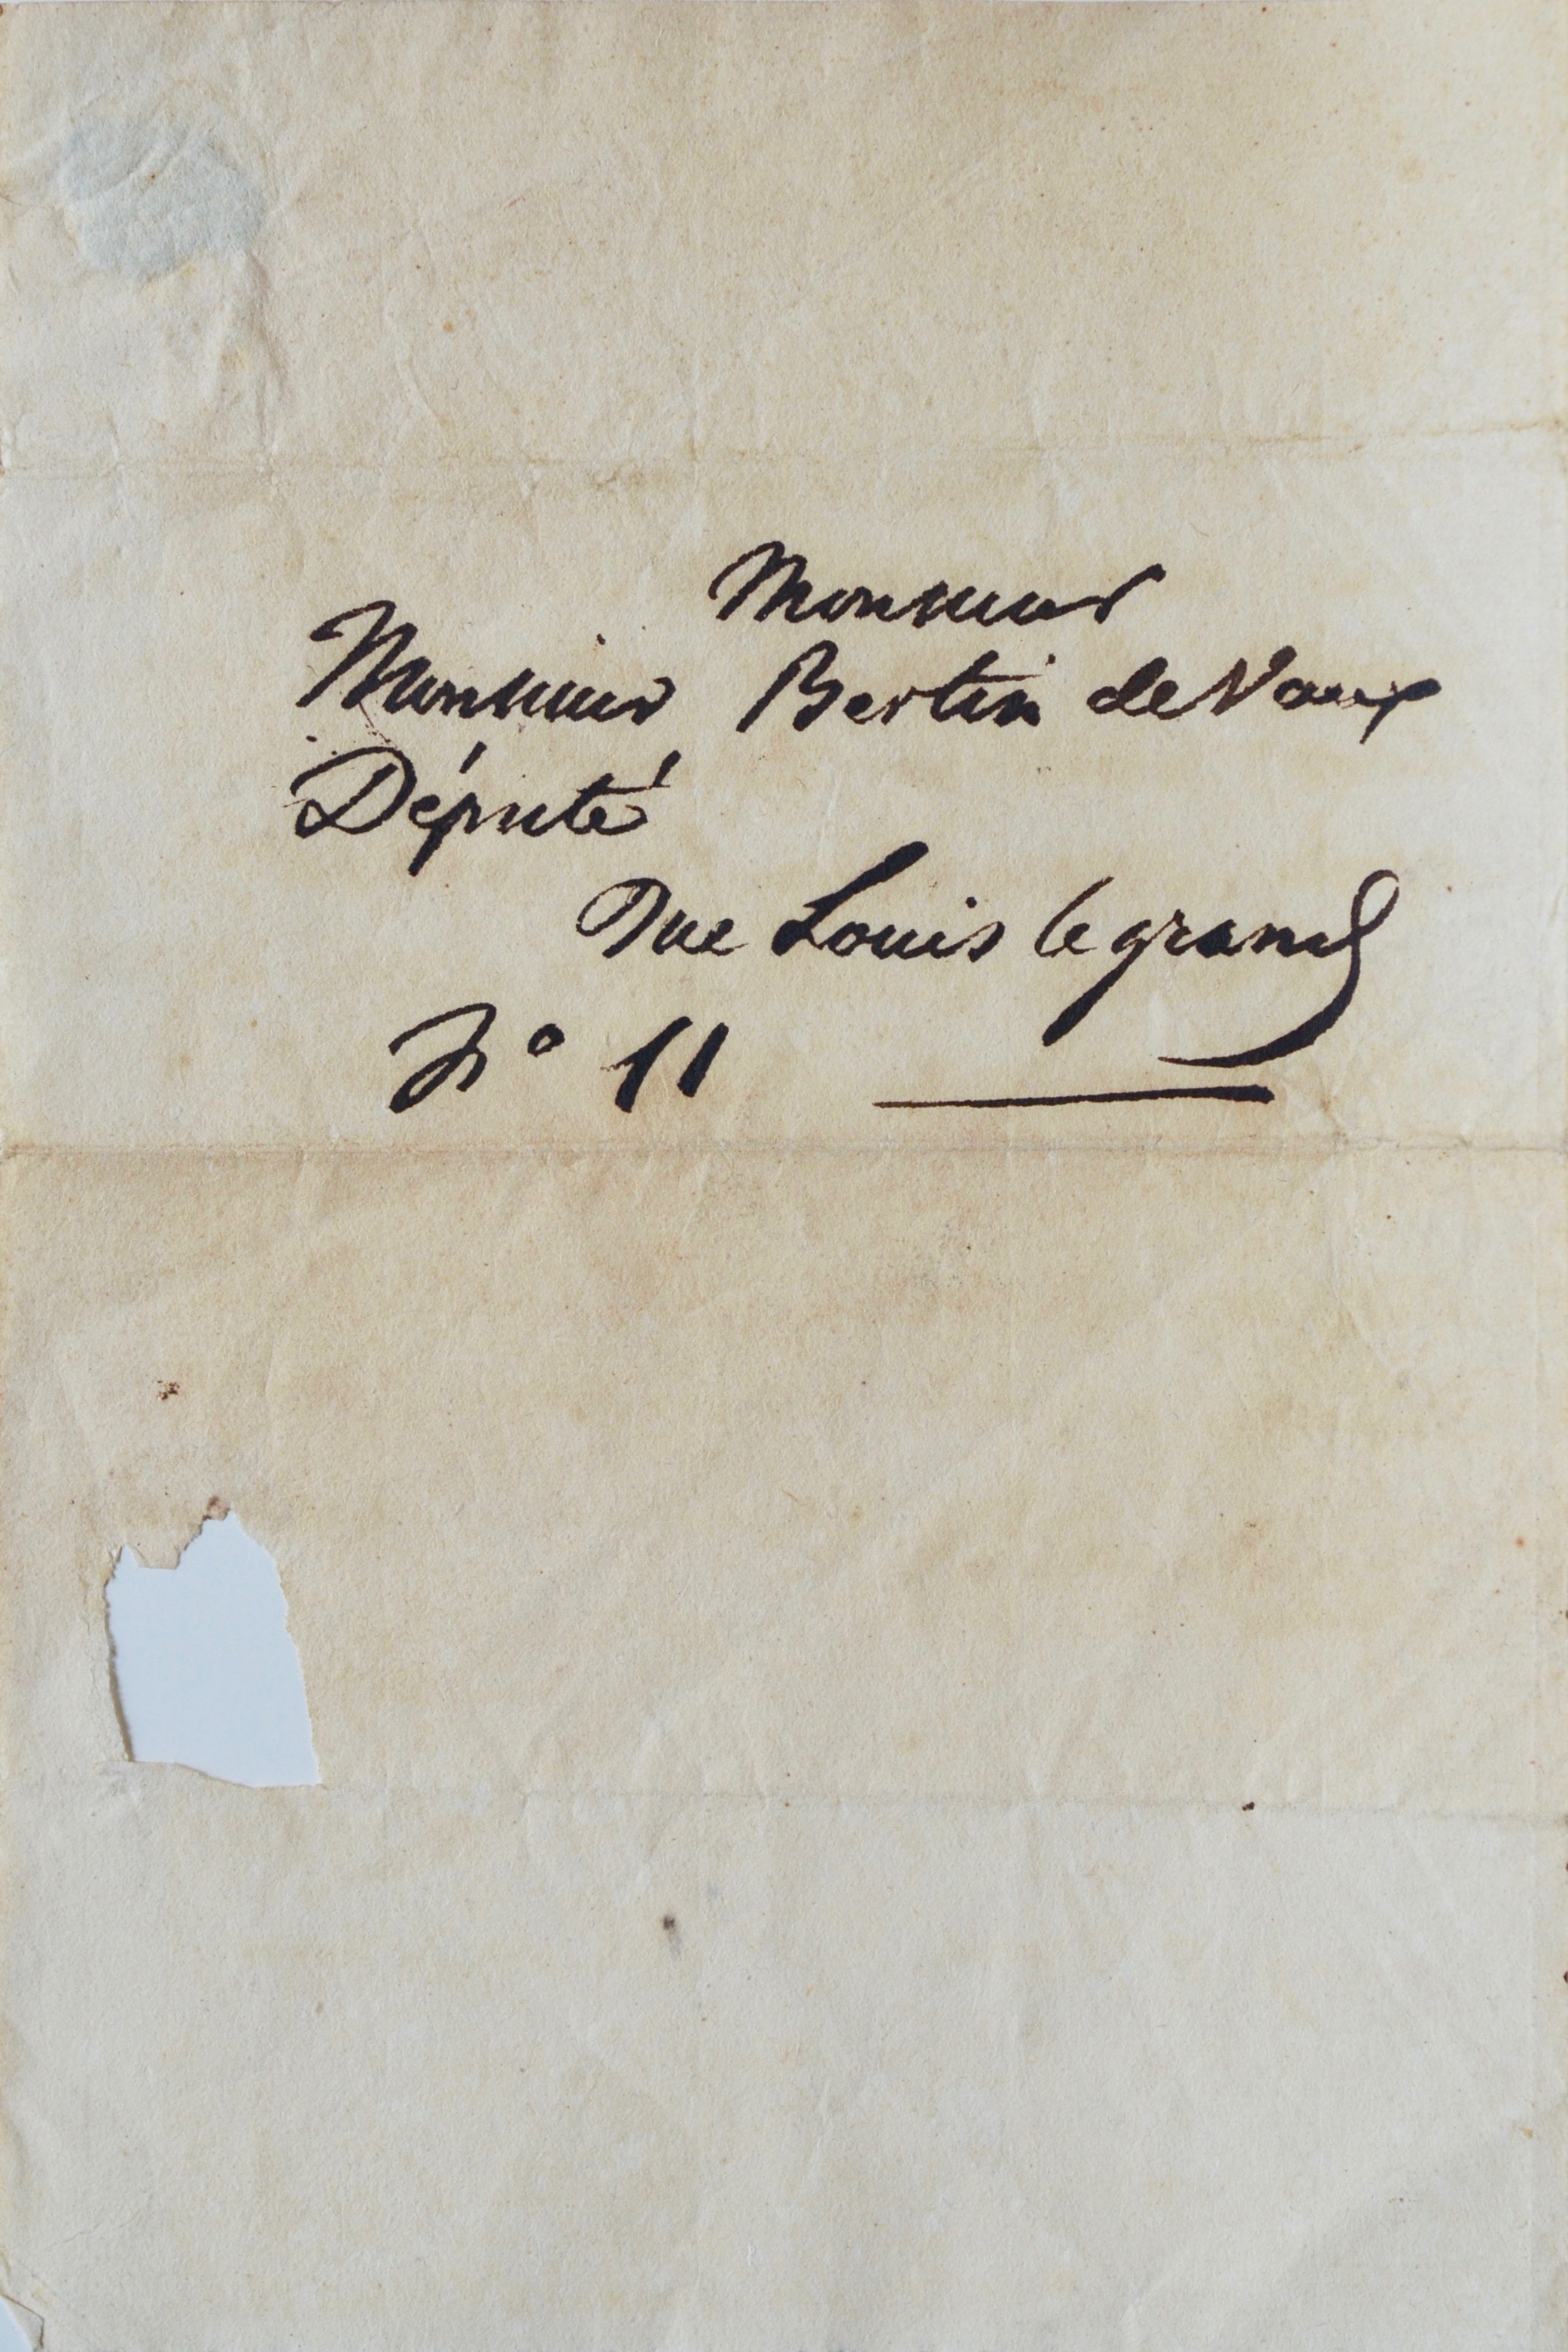 Monsieur
Monsieur Bertin de Vaux
Député
Rue Louis legrand
N° 11